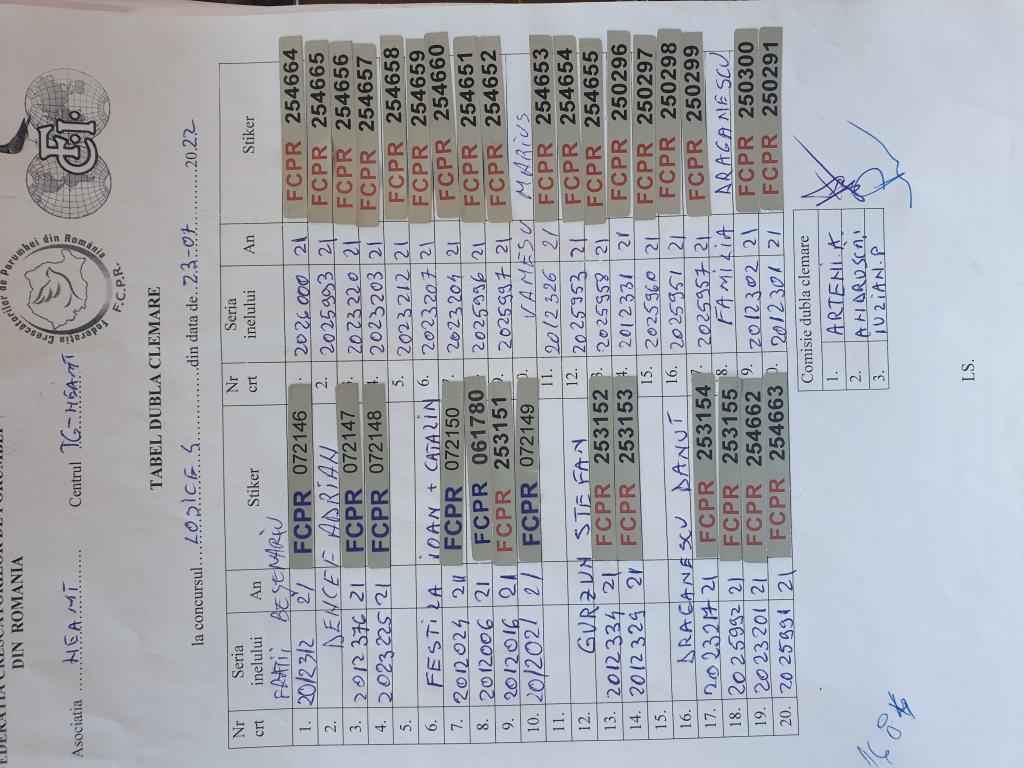 DIN ROMANIA
Asociatia NEAMT Centrul TG-NEAMT
Federatia Crescatorilor de Porumbei din România
F.C.P.R.
FCI
TABEL DUBLA CLEMARE
la concursul LODICE S din data de 23-07 2022
Nr crt Seria inelului An Stiker Nr crt Seria inelului An Stiker
FRATII BESEMARIU
1. 2012312 21 FCPR 072146 1. 2026000 21 FCPR 254664
2. DENCEF ADRIAN 2. 2025993 21 FCPR 254665
3. 2012376 21 FCPR 072147 3. 2023220 21 FCPR 254656
4. 2023225 21 FCPR 072148 4. 2023203 21 FCPR 254657
5. 5. 2023212 21 FCPR 254658
6. FESTILA IOAN + CATALIN 6. 2023207 21 FCPR 254659
7. 2012024 21 FCPR 072150 7. 2023204 21 FCPR 254660
8. 2012006 21 FCPR 061780 8. 2025996 21 FCPR 254651
9. 2012016 21 FCPR 253151 9. 2025997 21 FCPR 254652
10. 2012021 21 FCPR 072149 0. VAMESU MARIUS
11. 11. 2012326 21 FCPR 254653
12. GURZUN STEFAN 12. 2025953 21 FCPR 254654
13. 2012334 21 FCPR 253152 3. 2025958 21 FCPR 254655
14. 2012329 21 FCPR 253153 4. 2012331 21 FCPR 250296
15. 15. 2025960 21 FCPR 250297
16. DRAGANESCU DANUT 16. 2025951 21 FCPR 250298
17. 2023217 21 FCPR 253154 7. 2025957 21 FCPR 250299
18. 2025992 21 FCPR 253155 8. FAMILIA ARAGANESCU
19. 2023201 21 FCPR 254662 9. 2012302 21 FCPR 250300
20. 2025991 21 FCPR 254663 0. 2012301 21 FCPR 250291
Comisie dubla clemare
1. ARTENI.A
2. ANDRUSCA,
3. IUZIAN.P
LS.
16 8